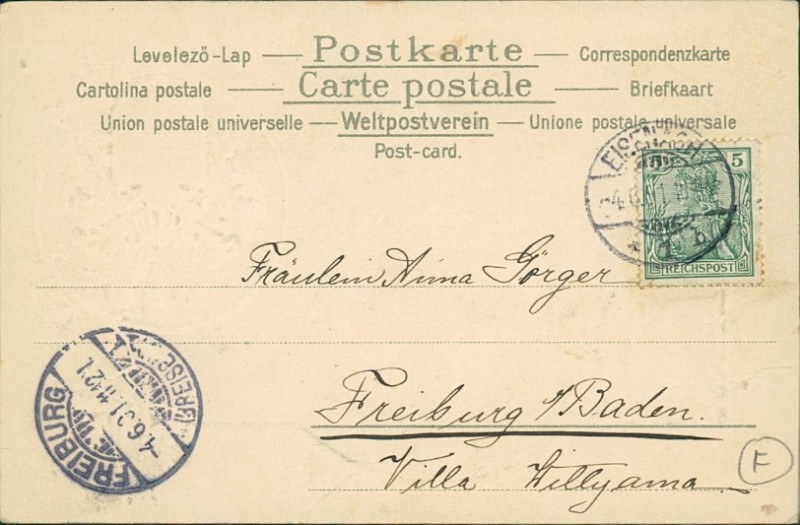 Levelező-Lap — Postkarte — Correspondenzkarte
Cartolina postale — Carte postale — Briefkaart
Union postale universelle — Weltpostverein — Unione postale universale
Post-card.
5
REICHSPOST
* 1 b
Fräulein Anna Görger
FREIBURG
(BREISGAU)
4.6.01.11-12 V.
Freiburg i/Baden.
Villa Willyama
F